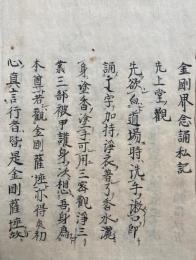 金剛界念誦私記
先上堂觀
先欲入道場時洗手漱口即
誦 字加持淨衣著了香水灑
身塗香塗二手可用三密觀淨三
業三部被甲護身次想吾身為
本尊若觀金剛薩埵亦得矣初
心真言行者皆是金剛薩埵故